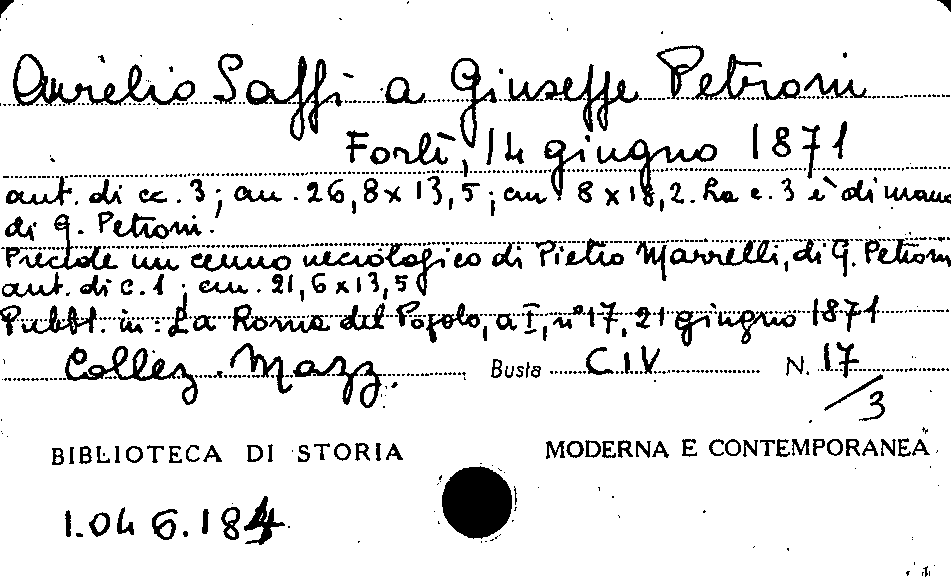 Aurelio Saffi a Giuseppe Petroni
Forlì, 14 giugno 1871
aut. di cc. 3; cm. 26,8 x 13,5; cm. 8 x 18,2. La c. 3 è di mano
di G. Petroni.
Precede un cenno necrologico di Pietro Marrelli, di G. Petroni
aut. di c. 1; cm. 21,6 x 13,5
Pubbl. in: La Roma del Popolo, a I, n° 17, 21 giugno 1871
Collez. Mazz. Busta CIV N. 17
/3
BIBLIOTECA DI STORIA MODERNA E CONTEMPORANEA
1.046.184